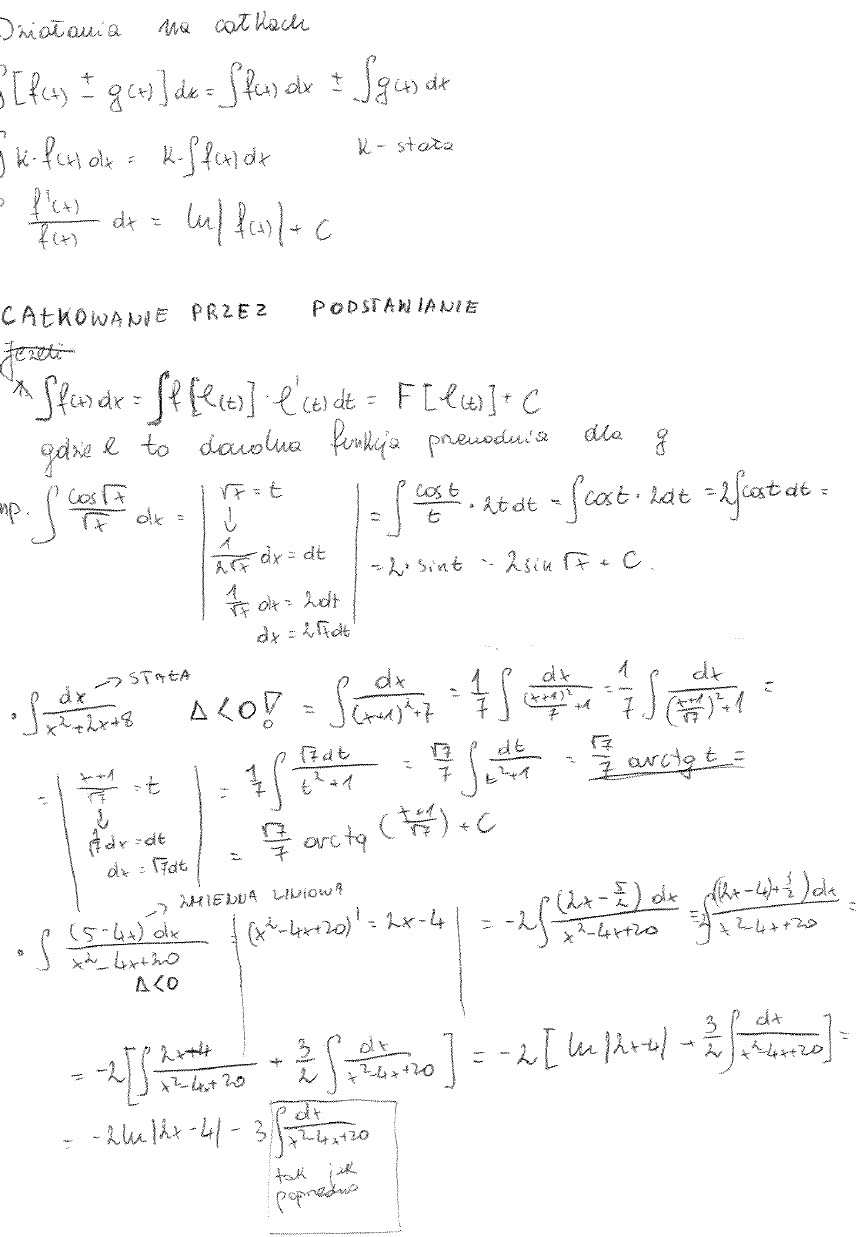 Działania na całkach
∫[f(x) ± g(x)]dx = ∫f(x) dx ± ∫g(x) dx
∫ k·f(x) dx = k·∫f(x) dx    k - stała
f'(x)/f(x) dx = ln|f(x)| + C
CAŁKOWANIE PRZEZ PODSTAWIANIE
Jeżeli
* ∫f(x) dx = ∫f[φ(t)]·φ'(t) dt = F[φ(t)] + C
gdzie φ to dowolna funkcja przewodnia dla g
np. ∫ cos√x/√x dx = | √x = t ↓ 1/(2√x) dx = dt  1/√x dx = 2dt  dx = 2√x dt | = ∫ cost/t · 2t dt = ∫cost · 2dt = 2∫cost dt =
= 2· sint = 2sin √x + C.
• ∫ dx/(x²+2x+8) → STAŁA  Δ<0! = ∫ dx/((x+1)²+7) = 1/7 ∫ dx/((x+1)²/7 +1) = 1/7 ∫ dx/(((x+1)/√7)²+1) =
= | (x+1)/√7 = t ↓ 1/√7 dx = dt  dx = √7dt | = 1/7 ∫ √7dt/(t²+1) = √7/7 ∫ dt/(t²+1) = √7/7 arctg t =
= √7/7 arctg ((x+1)/√7) + C
→ ZMIENNA LINIOWA
• ∫ (5-4x) dx/(x²-4x+20) = | (x²-4x+20)' = 2x-4 | = -2∫ (2x-5/2) dx/(x²-4x+20) = -2∫ ((2x-4)+3/2) dx/(x²-4x+20) =
Δ<0
= -2[∫ 2x+4/(x²-4x+20) + 3/2 ∫ dx/(x²-4x+20)] = -2[ ln|2x-4| + 3/2 ∫ dx/(x²-4x+20)] =
= -2ln|2x-4| - 3 ∫ dx/(x²-4x+20)
tak jak
poprzednio